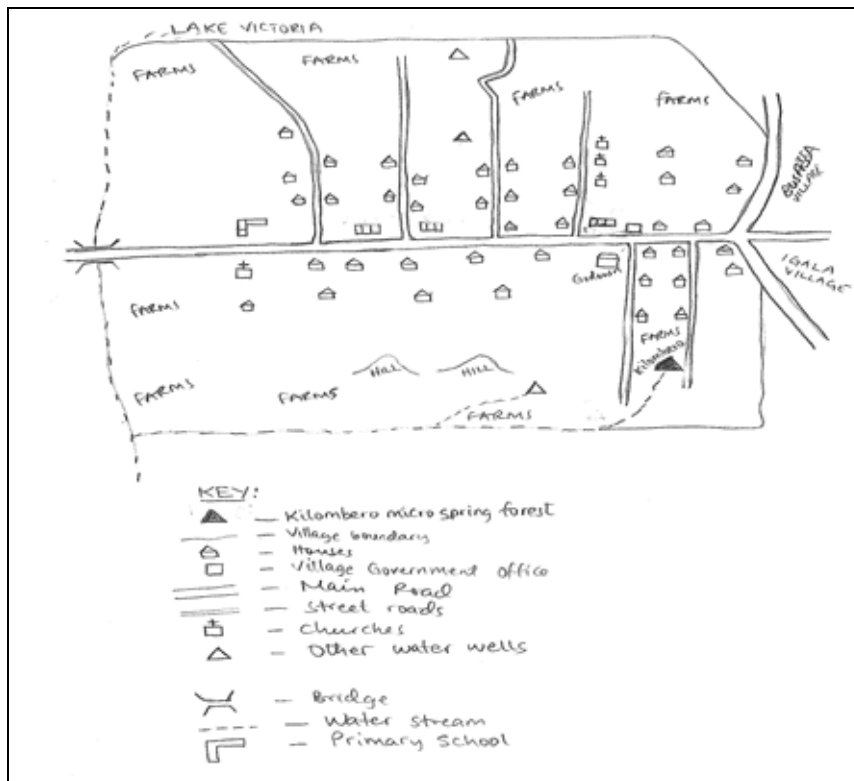 LAKE VICTORIA
FARMS
FARMS
FARMS
FARMS
VILLAGE
IGALA
VILLAGE
FARMS
FARMS
Kilombero
HILL
HILL
FARMS
FARMS
FARMS
KEY:
Kilombero micro spring forest
Village boundary
Houses
Village Government Office
Main Road
Street roads
Churches
Other water wells
Bridge
Water stream
Primary School